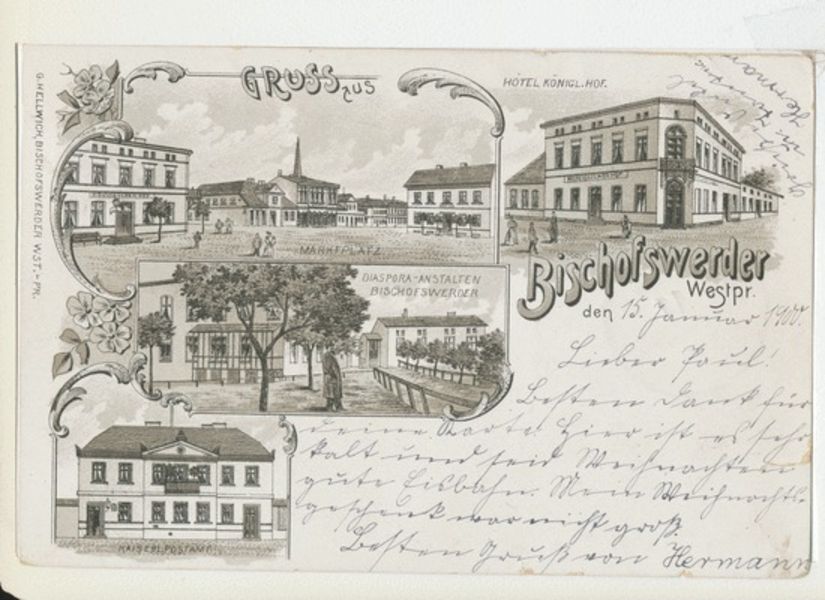 GRUSS AUS
HÔTEL KÖNIGL. HOF.
G. HELLWICH, BISCHOFSWERDER WST.-PR.
MARKTPLATZ
DIASPORA-ANSTALTEN
BISCHOFSWERDER
KAISERL. POSTAMT
Bischofswerder
Westpr.
den 15. Januar 1900.
Lieber Paul!
Besten Dank für
deine Karte. Hier ist es sehr
kalt und seid Weihnachten
gute Eisbahn. Mein Weihnachts-
geschenk war nicht groß.
Besten Gruß von Hermann
Hermann